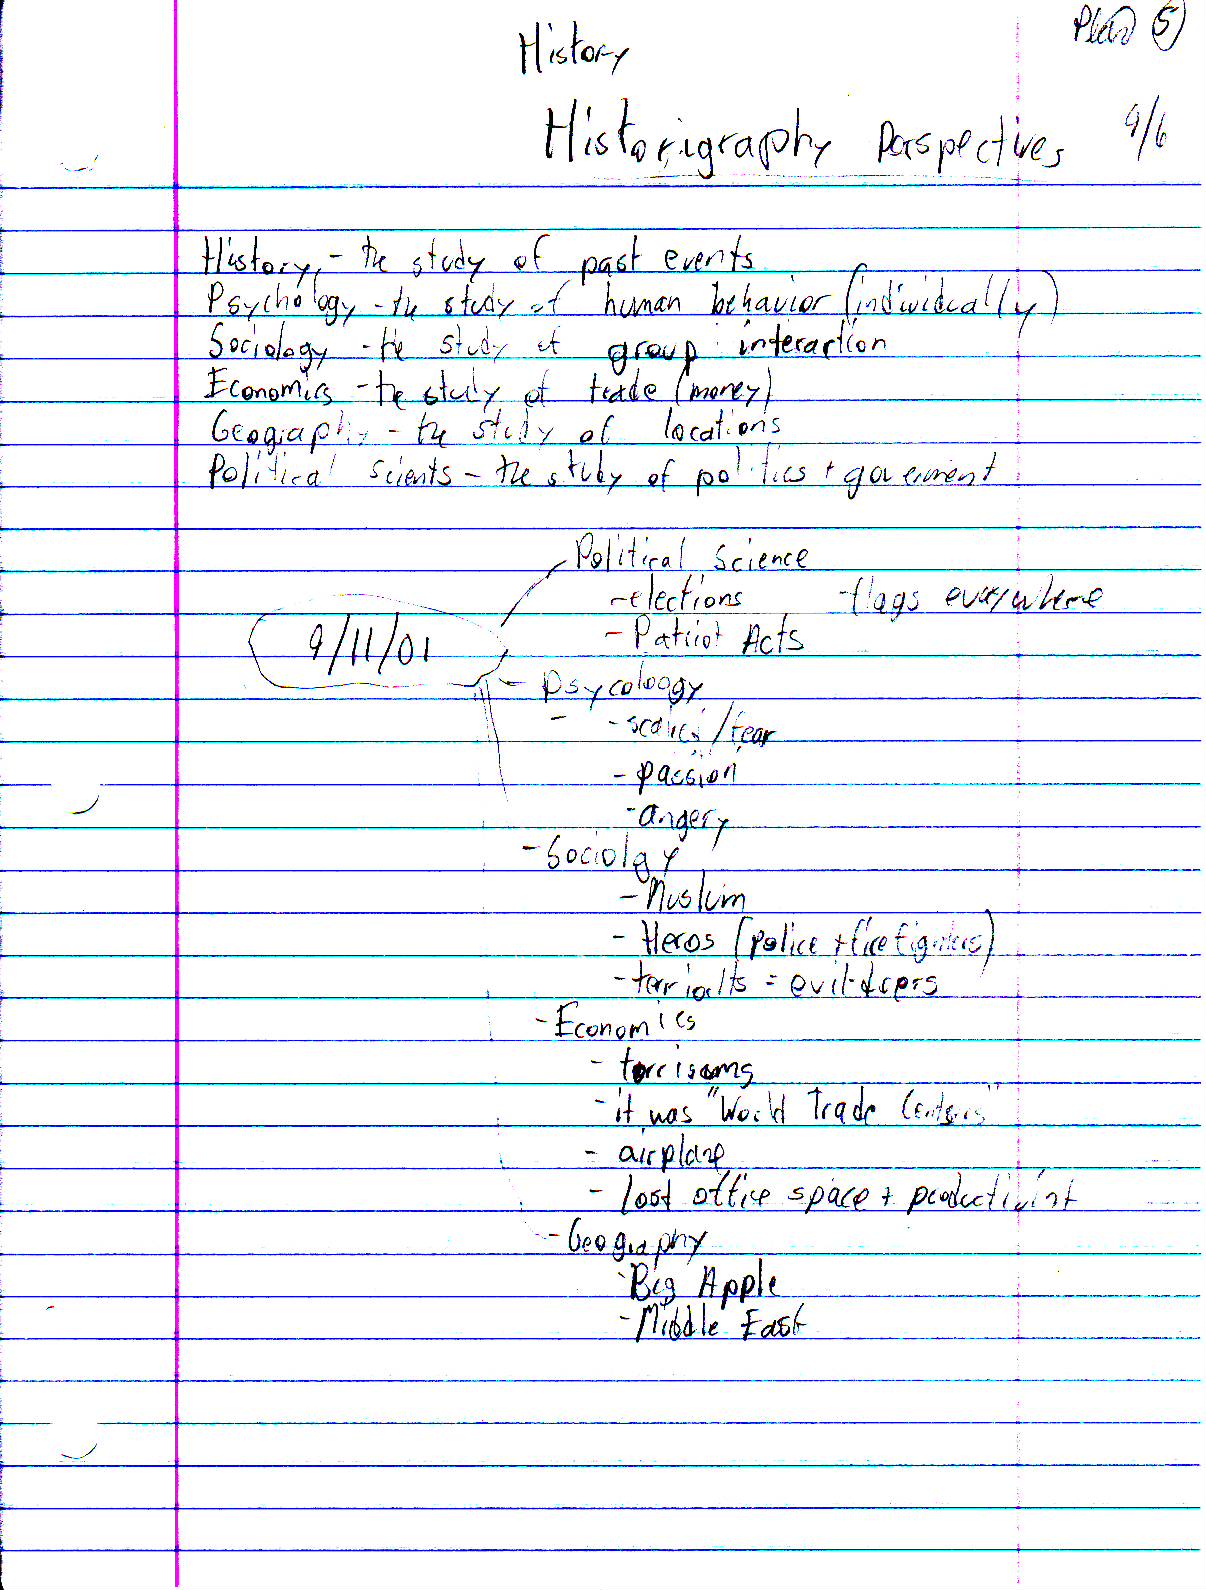 History
5
Historigraphy Perspectives 9/6
History - the study of past events
Psychology - the study of human behavior (individually)
Sociology - the study of group interaction
Economics - the study of trade (money)
Geography - the study of locations
Political Scients - the study of politics + goverment
Political Science
-elections -flags everywhere
9/11/01
- Patriot Acts
- Psycology
- - /fear
- passion
-angery
-Sociolgy
-Muslim
- Heros (police + firefighters)
= evil-doers
-Economics
-
-it was "World Trade Centers"
- airplane
- lost office space +
-Geography
-Big Apple
-Middle East